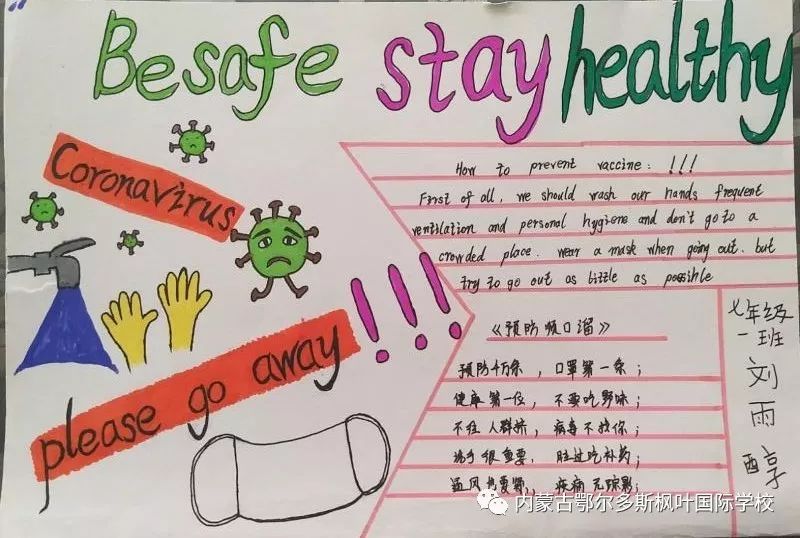 Be safe stay healthy
Coronavirus
please go away!!!
How to prevent vaccine: !!!
First of all, we should wash our hands frequent
ventilation and personal hygiene and don't go to a
crowded place. wear a mask when going out. but
try to go out as little as possible
《预防顺口溜》
预防千万条，口罩第一条；
健康第一位，不要吃野味；
不往人群挤，病毒不找你；
洗手很重要，胜过吃补药；
通风也要勤，疾病无踪影；
七年级
一班
刘
雨
醇
内蒙古鄂尔多斯枫叶国际学校